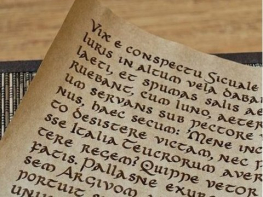 Vix e conspectu Siculae
luris in altum vela daban
laeti, et spumas salis ae
ruebant, cum Iuno, aeter
um servans sub pectore
nus, haec secum: Mene inc
to desistere victam, nec p
sse Italia Teucrorum aver
tere regem? Quippe vetor
fatis. Pallasne exur
sem Argivom a
portuit